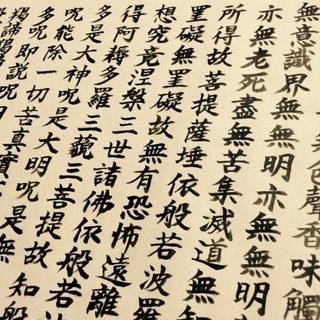 色聲香味觸
無意識界無無明亦無無明
亦無老死盡無苦集滅道無
所得故菩提薩埵依般若波羅
罣礙無罣礙故無有恐怖遠離
想究竟涅槃三世諸佛依般若
得阿耨多羅三藐三菩提故知般
是大神呪是大明呪是無
呪能除一切苦真實
多呪即說呪